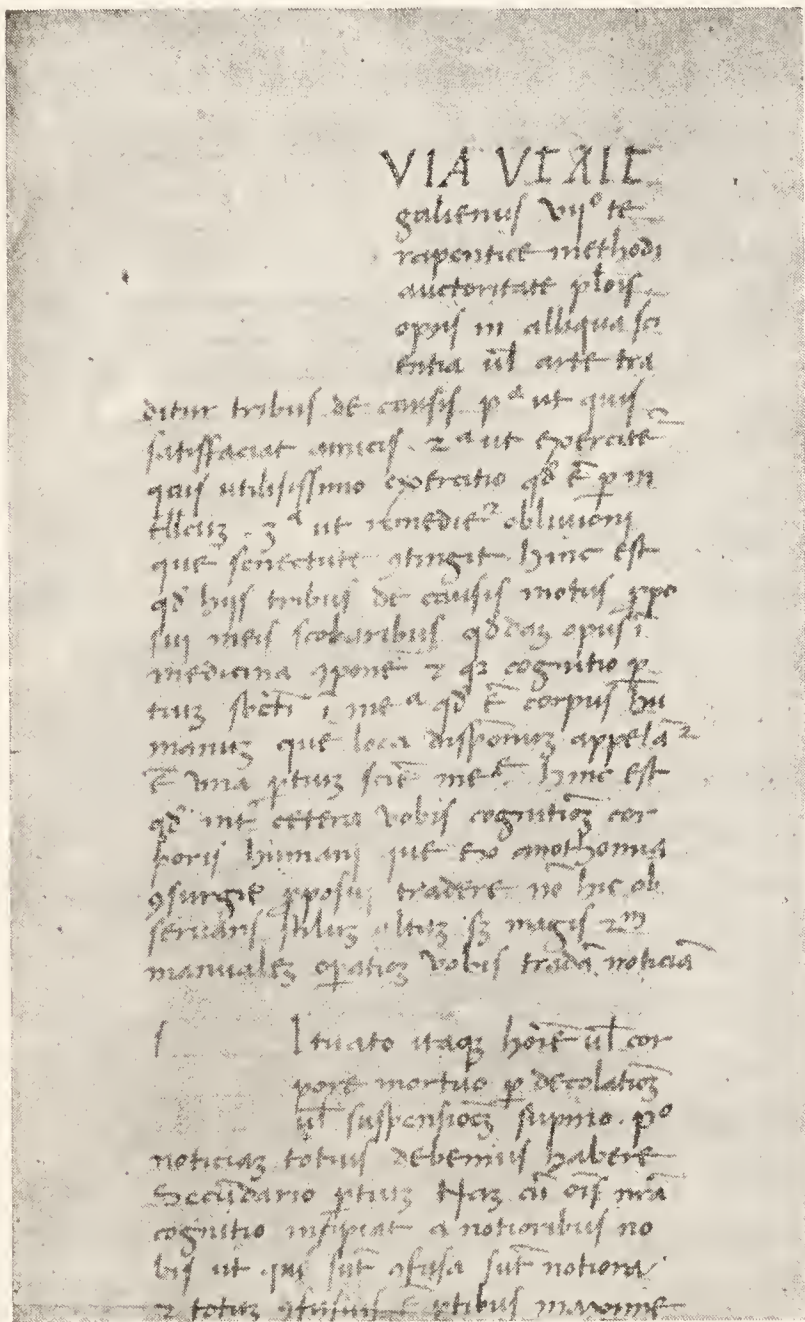 VIA VT AIT
galienus vij° te
rapentice methodi
auctoritate ploīs
opus in alliqua sci
entia ūl arte tra
ditur tribus de causis pª ut quis
satisfaciat amicis. 2ª ut exercite²
quis utilisissimo exercitio qđ ē ꝑ in
tllcūꝫ. 3ª ut remedie² oblivioni
que senectute ꝯtingit hinc est
qđ hijs tribus de causis motus ꝓpo
sui meis scolaribus qđdaꝫ opus ī
medicina ꝯponē ⁊ qꝛ cognitio ꝑ
tiuꝫ sbcti ī meª qđ ē corpus hu
manuꝫ que loca disponimuꝫ appelā²
ē una ꝑtiuꝫ sciē meᵉ. hinc est
qđ int² cetera vobis cognitioꝫ cor
poris humani que ex anothomia
ꝯsurgit ꝓposui tradere nō hic ob
servans stiluꝫ altuꝫ sꝫ magis 2ᵐ
manualeꝫ oꝑatioꝫ vobis tradā noticiā
s Ituato itaqꝫ hōīe ūl cor
pore mortuo ꝑ decolatioꝫ
ūl suspensioꝫ supino. pº
noticiaꝫ totius debemus habere
Secūdario ꝑtiuꝫ Naꝫ cū oīs nrā
cognitio insipiat a notioribus no
bis ut qui sūt ꝯfusa sūt notiora
⁊ totuꝫ ꝯfusius ē ꝑtibus maxime